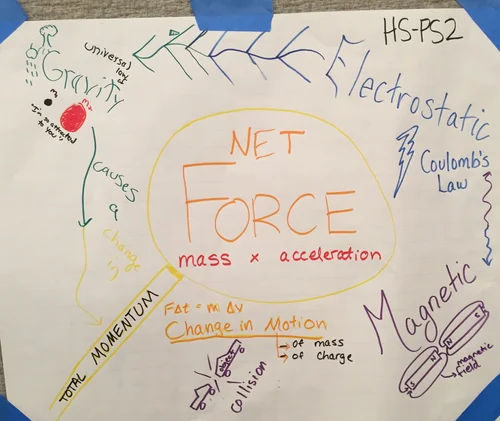 HS-PS2
universal
law of
Gravity
m₁
m₂
"I'm so attracted
to you"
causes
a
change
in
TOTAL MOMENTUM
Electrostatic
Coulomb's
Law
NET
FORCE
mass x acceleration
F∆t = m ∆v
Change in Motion
→ of mass
→ of charge
object
collision
Magnetic
S
N
N
S
magnetic
field